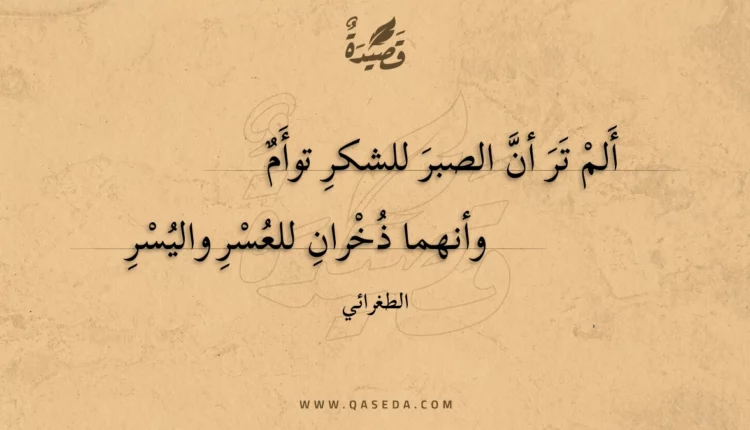 قَصِيدَةٌ
أَلمْ تَرَ أنَّ الصبرَ للشكرِ توأَمٌ
وأنهما ذُخْرانِ للعُسْرِ واليُسْرِ
الطغرائي
WWW.QASEDA.COM